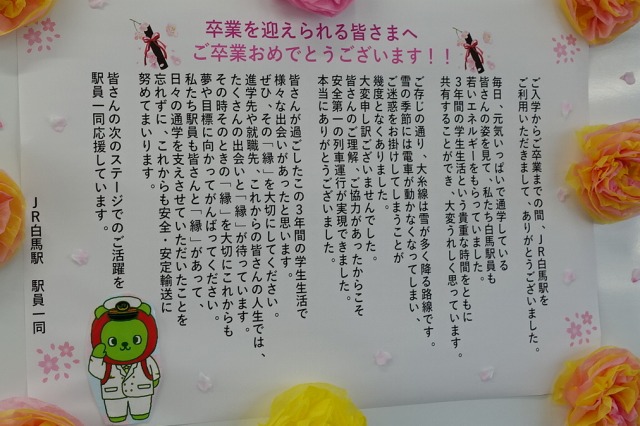 卒業を迎えられる皆さまへ
ご卒業おめでとうございます!!
ご入学からご卒業までの間、JR白馬駅を
ご利用いただきまして、ありがとうございました。
毎日、元気いっぱいで通学している
皆さんの姿を見て、私たち白馬駅員も
若いエネルギーをもらっていました。
3年間の学生生活という貴重な時間をともに
共有することができ、大変うれしく思っています。
ご存じの通り、大糸線は雪が多く降る路線です。
雪の季節には電車が動かなくなってしまい、
ご迷惑をお掛けしてしまうことが
幾度となくありました。
大変申し訳ございませんでした。
皆さんのご理解、ご協力があったからこそ
安全第一の列車運行が実現できました。
本当にありがとうございました。
皆さんが過ごしたこの3年間の学生生活で
様々な出会いがあったと思います。
ぜひ、その「縁」を大切にしてください。
進学先や就職先、これからの皆さんの人生では、
たくさんの出会いと「縁」が待っています。
その時そのときの「縁」を大切にこれからも
夢や目標に向かってがんばってください。
私たち駅員も皆さんと「縁」があって、
日々の通学を支えさせていただいたことを
忘れずに、これからも安全・安定輸送に
努めてまいります。
皆さんの次のステージでのご活躍を
駅員一同応援しています。
JR白馬駅 駅員一同